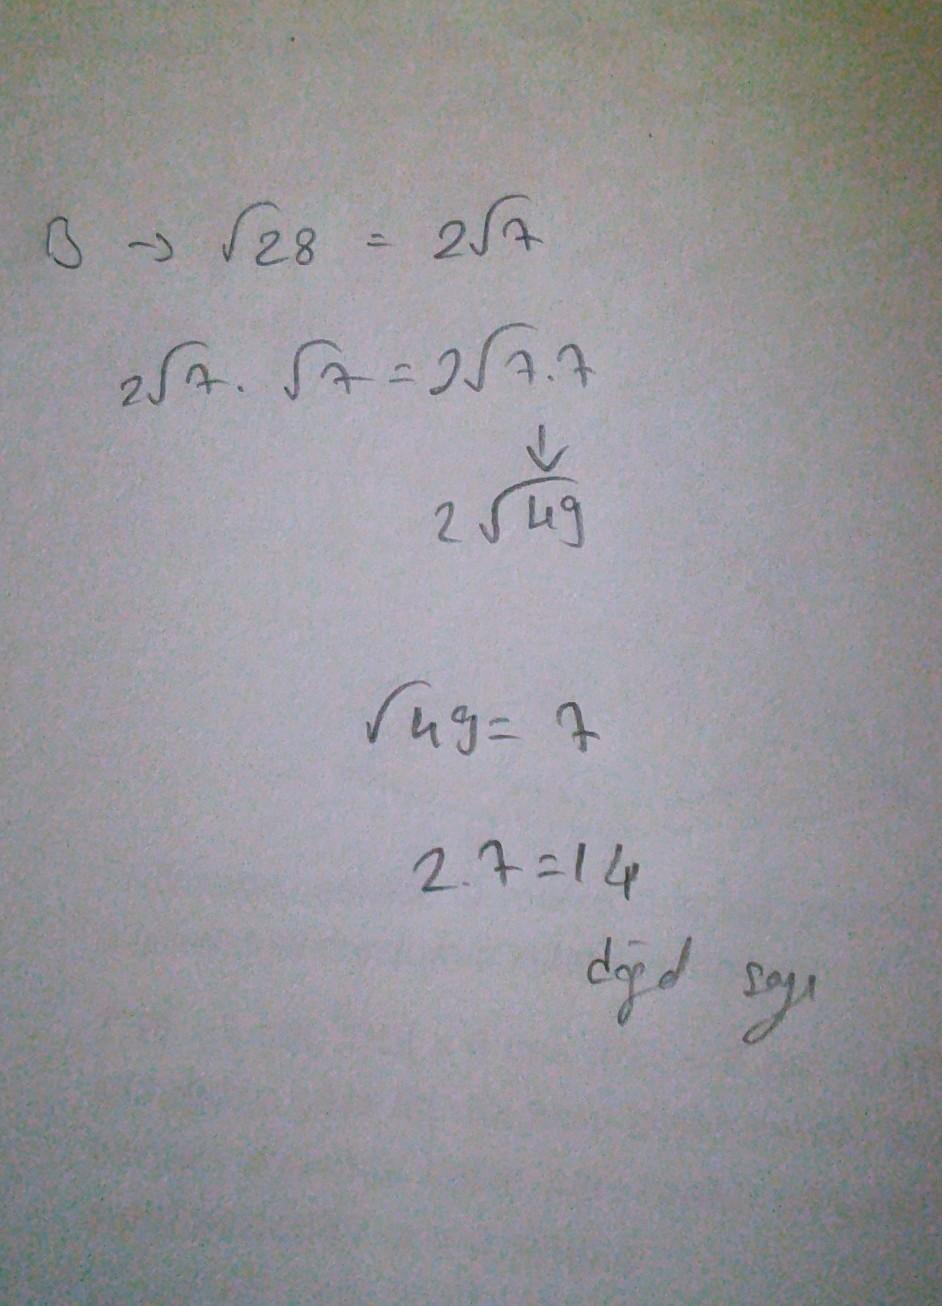 B → √28 = 2√7
2√7 . √7 = 2√7.7
↓
2√49
√49 = 7
2.7=14
sayı